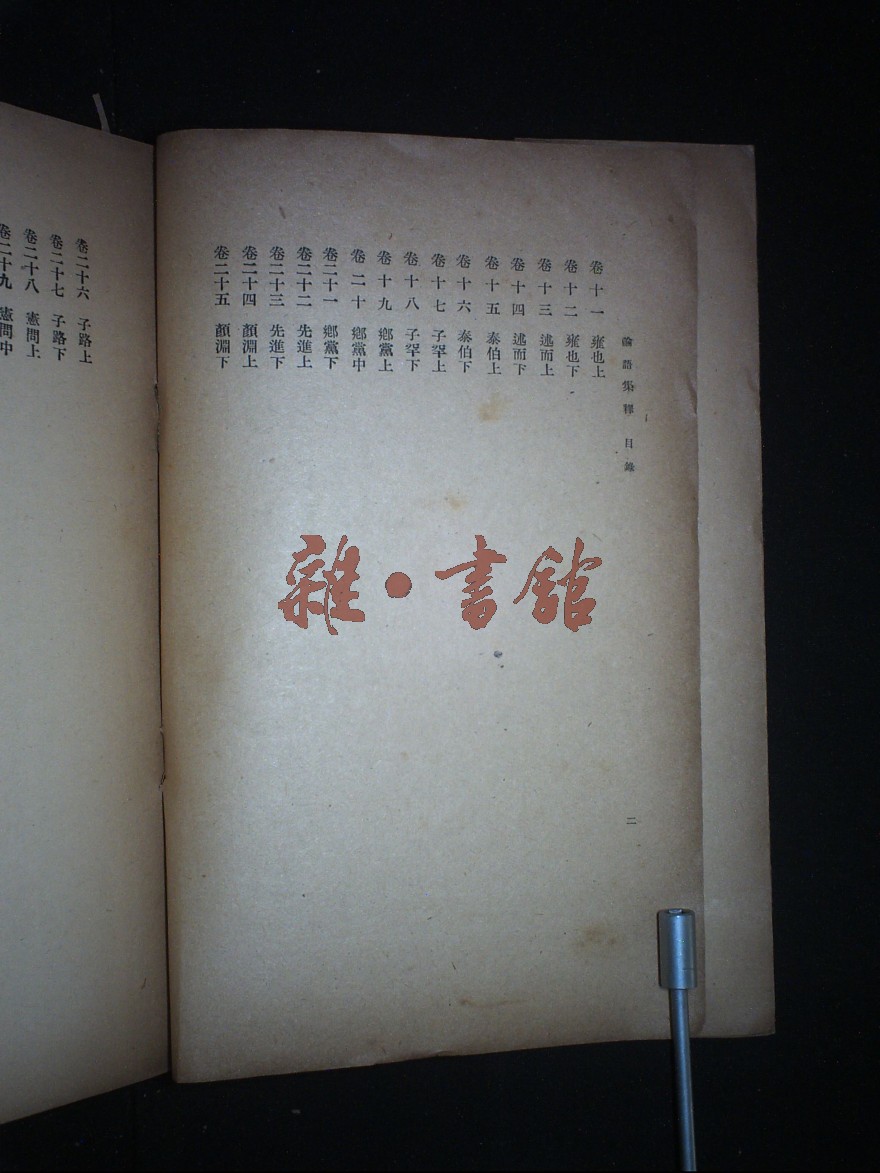 論語集釋 目錄
卷十一 雍也上
卷十二 雍也下
卷十三 述而上
卷十四 述而下
卷十五 泰伯上
卷十六 泰伯下
卷十七 子罕上
卷十八 子罕下
卷十九 鄉黨上
卷二十 鄉黨中
卷二十一 鄉黨下
卷二十二 先進上
卷二十三 先進下
卷二十四 顏淵上
卷二十五 顏淵下
二
卷二十六 子路上
卷二十七 子路下
卷二十八 憲問上
卷二十九 憲問中
雜·書館